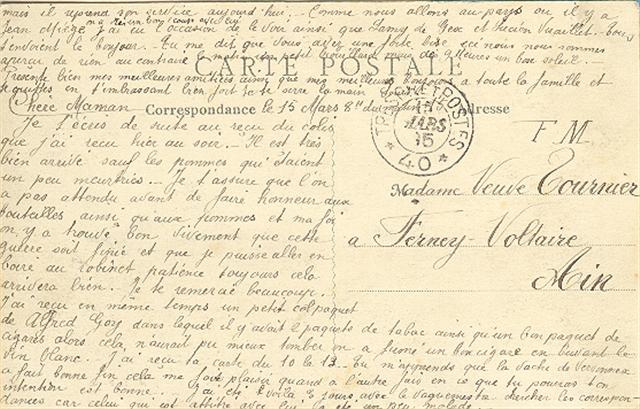 mais il reprend son service aujourd'hui. Comme nous allons au pays où il y a
Jean Offièze j'ai eu l'occasion de le voir ainsi que Lamy de Gex et Lucien Vuaillet. Tous
t'envoient le bonjour. Tu me dit que vous avez une forte bise ici nous nous sommes
aperçu de rien au contraire le matin un petit brouillard puis des 9 heures un bon soleil.
Présente bien mes meilleures amitiées ainsi que mes meilleurs bonjour a toute la famille et
CARTE POSTALE
en t'embrassant bien fort je te serre la main
Correspondance Adresse
Chère Maman le 15 Mars 8h du
Je t'écris de suite au reçu du colis
que j'ai reçu hier au soir. Il est très
bien arrivé sauf les pommes qui étaient
un peu meurtries. Je t'assure que l'on
a pas attendu avant de faire honneur aux
bouteilles ainsi qu'aux pommes et ma foi
on y a trouvé bon vivement que cette
guerre soit finie et que je puisse aller en
boire au robinet patience toujours cela
arrivera bien. Je te remercie beaucoup.
J'ai reçu en même temps un petit colpaquet
de Alfred Goy dans lequel il y avait 2 paquets de tabac ainsi qu'un bon paquet de
cigares alors cela n'aurait pu mieux tomber on a fumé un bon cigare en buvant le
vin blanc. J'ai reçu ta carte du 10 le 13. Tu m'apprends que la vache de Versonnex
a fait bonne fin cela me fait plaisir quand à l'autre fais en ce que tu pourras ton
intention est bonne. J'ai été voilà jours avec le vaguemestre chercher les correspon
dances car celui qui est attitré avec été un peu malade
TRESOR ET POSTES
MARS
15
* 40 *
F M
Madame Veuve Tournier
a Ferney-Voltaire
Ain